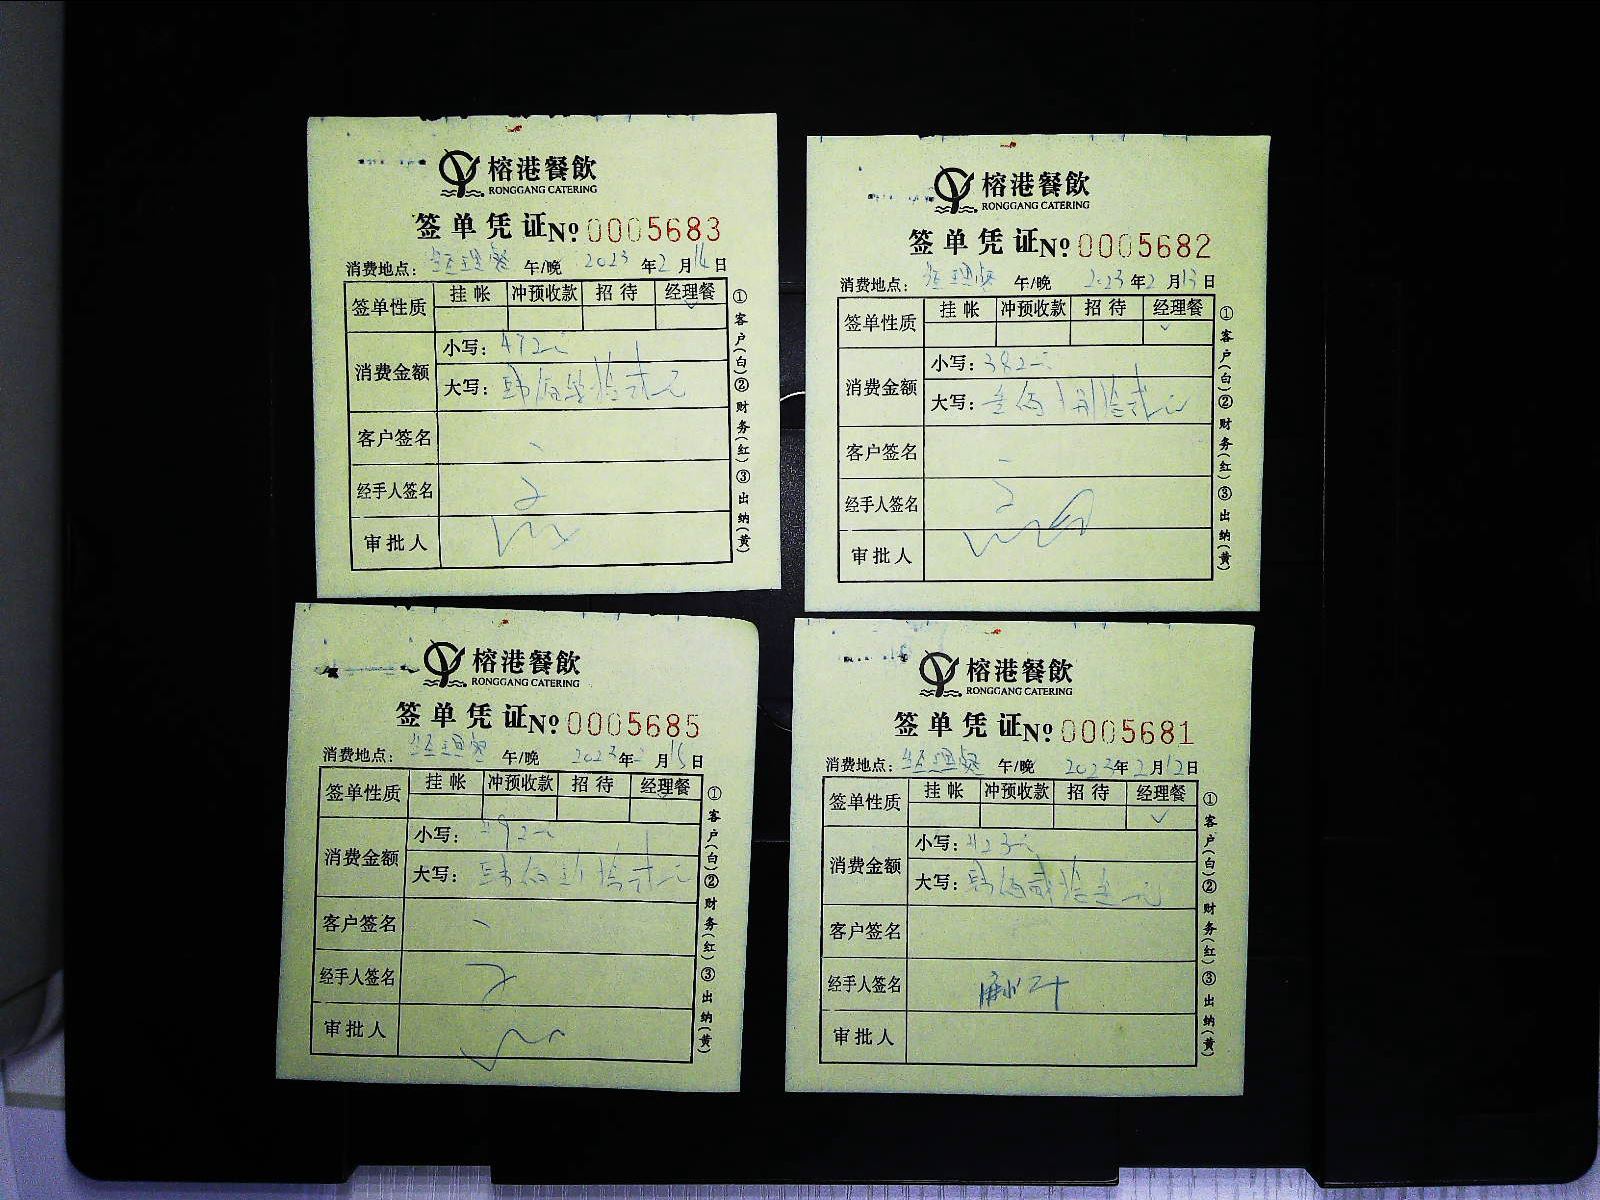 榕港餐飲
RONGGANG CATERING
签单凭证№ 0005683
消费地点: 经理餐 午/晚 2023年2月14日
签单性质 挂帐 冲预收款 招待 经理餐
消费金额
小写: 472元
大写: 肆佰柒拾贰元
客户签名
经手人签名
审批人
①客户(白)②财务(红)③出纳(黄)
榕港餐飲
RONGGANG CATERING
签单凭证№ 0005682
消费地点: 经理餐 午/晚 2023年2月13日
签单性质 挂帐 冲预收款 招待 经理餐
消费金额
小写: 382元
大写: 叁佰捌拾贰元
客户签名
经手人签名
审批人
①客户(白)②财务(红)③出纳(黄)
榕港餐飲
RONGGANG CATERING
签单凭证№ 0005685
消费地点: 经理餐 午/晚 2023年2月15日
签单性质 挂帐 冲预收款 招待 经理餐
消费金额
小写: 492元
大写: 肆佰玖拾贰元
客户签名
经手人签名
审批人
①客户(白)②财务(红)③出纳(黄)
榕港餐飲
RONGGANG CATERING
签单凭证№ 0005681
消费地点: 经理餐 午/晚 2023年2月12日
签单性质 挂帐 冲预收款 招待 经理餐
消费金额
小写: 423元
大写: 肆佰贰拾叁元
客户签名
经手人签名
审批人
①客户(白)②财务(红)③出纳(黄)